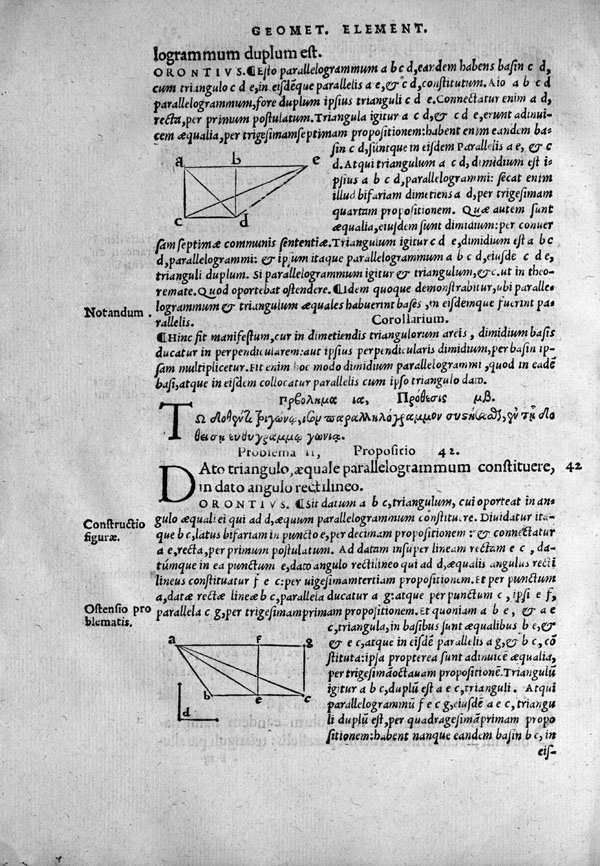 GEOMET. ELEMENT.
logrammum duplum est.
ORONTIVS. ¶Esto parallelogrammum a b c d, eandem habens basin c d,
cum triangulo c d e, in eisdēque parallelis a e, & c d, constitutum. Aio a b c d
parallelogrammum, fore duplum ipsius trianguli c d e. Connectatur enim a d,
recta, per primum postulatum. Triangula igitur a c d, & c d e, erunt adinui-
cem æqualia, per trigesimamseptimam propositionem: habent enim eandem ba-
sin c d, súntque in eisdem Parallelis a e, & c
d. Atqui triangulum a c d, dimidium est i-
psius a b c d, parallelogrammi: secat enim
illud bifariam dimetiens a d, per trigesimam
quartam propositionem. Quæ autem sunt
æqualia, eiusdem sunt dimidium: per conuer
sam septimæ communis sententiæ. Triangulum igitur c d e, dimidium est a b c
d, parallelogrammi: & ipsum itaque parallelogrammum a b c d, eiusdē c d e,
trianguli duplum. Si parallelogrammum igitur & triangulum, &c. ut in theo-
remate. Quod oportebat ostendere. ¶Idem quoque demonstrabitur, ubi paralle-
logrammum & triangulum æquales habuerint bases, in eisdemque fuerint pa-
rallelis.
Notandum.
Corollarium.
¶Hinc fit manifestum, cur in dimetiendis triangulorum areis, dimidium basis
ducatur in perpendicularem: aut ipsius perpendicularis dimidium, per basin ip-
sam multiplicetur. Fit enim hoc modo dimidium parallelogrammi, quod in eadē
basi, atque in eisdem collocatur parallelis cum ipso triangulo dato.
a b e
c d
Πρόβλημα ια, Πρόθεσις μβ.
ΤΩ δοθέντι τριγώνῳ, ἴσον παραλληλόγραμμον συστήσασθαι, ἐν τῇ δο
θείσῃ εὐθυγράμμῳ γωνίᾳ.
Problema 11, Propositio 42.
DAto triangulo, æquale parallelogrammum constituere, 42
in dato angulo rectilineo.
ORONTIVS. ¶Sit datum a b c, triangulum, cui oporteat in an-
gulo æquali ei qui ad d, æquum parallelogrammum constituere. Diuidatur ita-
que b c, latus bifariam in puncto e, per decimam propositionem: & connectatur
a e, recta, per primum postulatum. Ad datam insuper lineam rectam e c, da-
túmque in ea punctum e, dato angulo rectilineo qui ad d, æqualis angulus recti
lineus constituatur f e c: per uigesimamtertiam propositionem. Et per punctum
a, datæ rectæ lineæ b c, parallela ducatur a g: atque per punctum c, ipsi e f,
parallela c g, per trigesimamprimam propositionem. Et quoniam a b e, & a e
c, triangula, in basibus sunt æqualibus b e, &
& e c, atque in eisdē parallelis a g, & b c, cō
stituta: ipsa propterea sunt adinuicē æqualia,
per trigesimāoctauam propositionē. Triangulū
igitur a b c, duplū est a e c, trianguli. Atqui
parallelogrammū f e c g, eiusdē a e c, triangu
li duplū est, per quadragesimāprimam propo
sitionem: habent nanque eandem basin e c, in
eis-
Constructio
figuræ.
Ostensio pro
blematis.
a f g
b e c
d